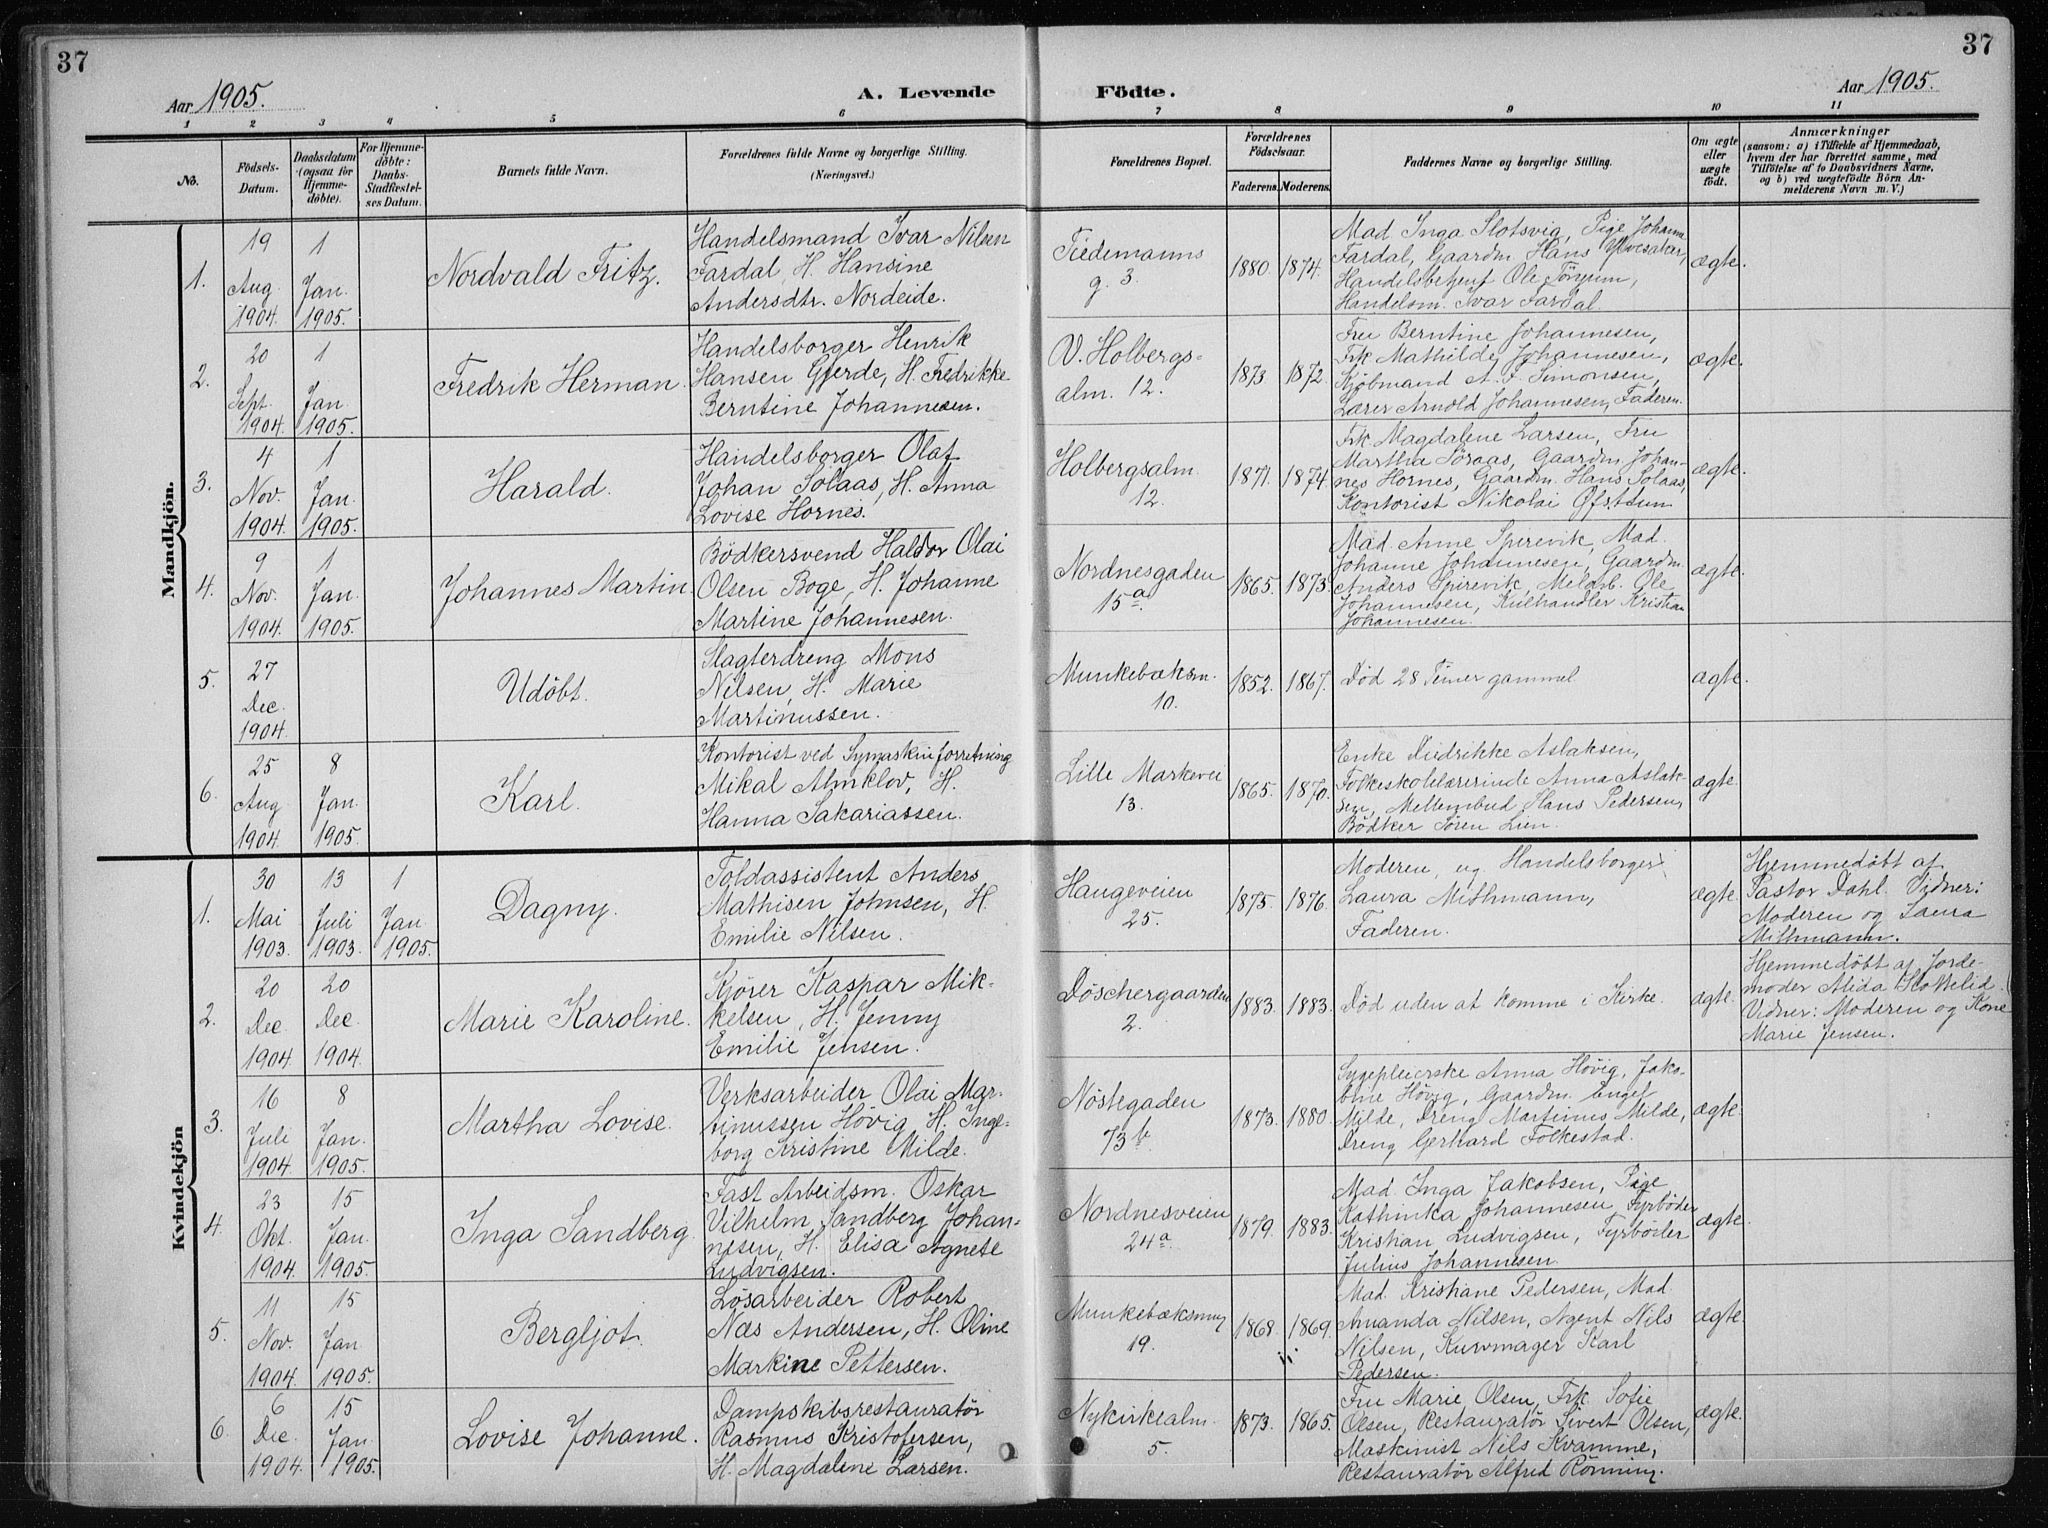 37
37
Aar 1905.
A. Levende
Födte.
Aar 1905.
1 2 3 4 5 6 7 8 9 10 11
No.
Födsels-
Datum.
Daabsdatum
(ogsaa for
Hjemme-
döbte).
For Hjemme-
döbte:
Daabs-
Stadfæstel-
ses Datum.
Barnets fulde Navn.
Forældrenes fulde Navne og borgerlige Stilling.
(Næringsvei.)
Forældrenes Bopæl.
Forældrenes
Födselsaar.
Faderens.
Moderens.
Faddernes Navne og borgerlige Stilling.
Om ægte
eller
uægte
födt.
Anmærkninger
(saasom: a) i Tilfælde af Hjemmedaab,
hvem der har forrettet samme, med
Tilföielse af to Daabsvidners Navne,
og b) ved uægtefödte Börn An-
melderens Navn m. V.)
Mandkjön.
1.
19
Aug.
1904.
1
Jan.
1905.
Nordvald Fritz.
Handelsmand Ivar Nilsen
Fardal, H. Hansine
Andersdtr. Nordeide.
Tiedemanns
g. 3.
1880.
1874.
Mad Inga Slotsvig, Pige Johanna
Fardal, Gaardm. Hans Ylvesaker,
Handelsbetjent Ole Töngum,
Handelsm. Ivar Fardal.
ægte.
2.
20
Sept.
1904.
1
Jan.
1905.
Fredrik Herman.
Handelsborger Henrik
Hansen Gjerde, H. Fredrikke
Berntine Johannesen.
V. Holbergs-
alm. 12.
1873.
1872.
Fru Berntine Johannesen,
Frk Mathilde Johannesen,
Kjøbmand A. F. Simonsen,
Lærer Arnold Johannesen, Faderen.
ægte.
3.
4
Nov.
1904.
1
Jan.
1905.
Harald.
Handelsborger Olaf
Johan Solaas, H. Anna
Lovise Hornes.
Holbergsalm.
12.
1871.
1874.
Frk Magdalene Larsen, Fru
Martha Søraas, Gaardm. Johan-
nes Hornes, Gaardm. Hans Solaas,
Kontorist Nikolai Øfstsun
ægte.
4.
9
Nov.
1904.
1
Jan.
1905.
Johannes Martin.
Bödkersvend Haldor Olai
Olsen Boge, H. Johanne
Martine Johannesen.
Nordnesgaden
15a.
1865.
1873.
Mad. Anne Spirevik, Mad.
Johanne Johannesen, Gaardm.
Anders Spirevik, Melarb. Ole
Johannesen, Kulhandler Kristian
Johannesen.
ægte.
5.
27
Dec.
1904.
Udöbt.
Slagterdreng Mons
Nilsen, H. Marie
Martinussen.
Munkebæksm.
10.
1852.
1867.
Død 28 Timer gammel
ægte.
6.
25
Aug.
1904.
8
Jan.
1905.
Karl.
Kontorist ved Symaskinforretning
Mikal Almklov, H.
Hanna Sakariassen.
Lille Markevei
13.
1865.
1870.
Enke Didrikke Aslaksen,
Folkeskolelærerinde Anna Aslak-
sen, Mellembud Hans Pedersen,
Bödker Søren Lien.
ægte.
Kvindekjön
1.
30
Mai
1903.
13
Juli
1903.
1
Jan.
1905.
Dagny.
Toldassistent Anders
Mathisen Johnsen, H.
Emilie Nilsen.
Haugeveien
25.
1875.
1876.
Moderen, ug. Handelsborger
Laura Mithmann,
Faderen.
ægte.
Hjemmedøbt af
Pastor Dahl. Vidner:
Moderen og Laura
Mithmann.
2.
20
Dec.
1904.
20
Dec.
1904.
Marie Karoline.
Kjører Kaspar Mik-
kelsen, H. Jenny
Emilie Jensen.
Døschergaarden
2.
1883.
1883.
Død uden at komme i Kirke.
ægte.
Hjemmedøbt af Jorde-
moder Alida Slottelid.
Vidner: Moderen og Kone
Marie Jensen.
3.
16
Juli
1904.
8
Jan.
1905.
Martha Lovise.
Verksarbeider Olai Mar-
tinussen Høvig H. Inge-
borg Kristine Milde.
Nøstegaden
73b
1873.
1880.
Sygepleierske Anna Høvig, Jako-
bine Høvig, Gaardm. Engel
Milde, Dreng Martinus Milde,
Dreng Gerhard Folkestad.
ægte.
4.
23
Okt.
1904.
15
Jan.
1905.
Inga Sandberg.
Fast Arbeidsm. Oskar
Vilhelm Sandberg Johan-
nesen, H. Elisa Agnete
Ludvigsen.
Nordnesveien
24a
1879.
1883.
Mad. Inga Jakobsen, Pige
Kathinka Johannesen, Fyrbøder
Kristian Ludvigsen, Fyrbøder
Julius Johannesen.
ægte.
5.
11
Nov.
1904.
15
Jan
1905.
Bergljot.
Løsarbeider Robert
Næs Andersen, H. Oline
Markine Pettersen.
Munkebæksmug
19.
1868.
1869.
Mad. Kristiane Pedersen, Mad.
Amanda Nilsen, Agent Nils
Nilsen, Kurvmager Karl
Pedersen.
ægte.
6.
6
Dec.
1904.
15
Jan.
1905.
Lovise Johanne.
Dampskibsrestauratør
Rasmus Kristofersen,
H. Magdalene Larsen.
Nykirkealm.
5.
1873.
1865.
Fru Marie Olsen, Frk. Sofie
Olsen, Restauratør Sivert Olsen,
Maskinist Nils Kvamme,
Restauratør Alfred Rönning.
ægte.